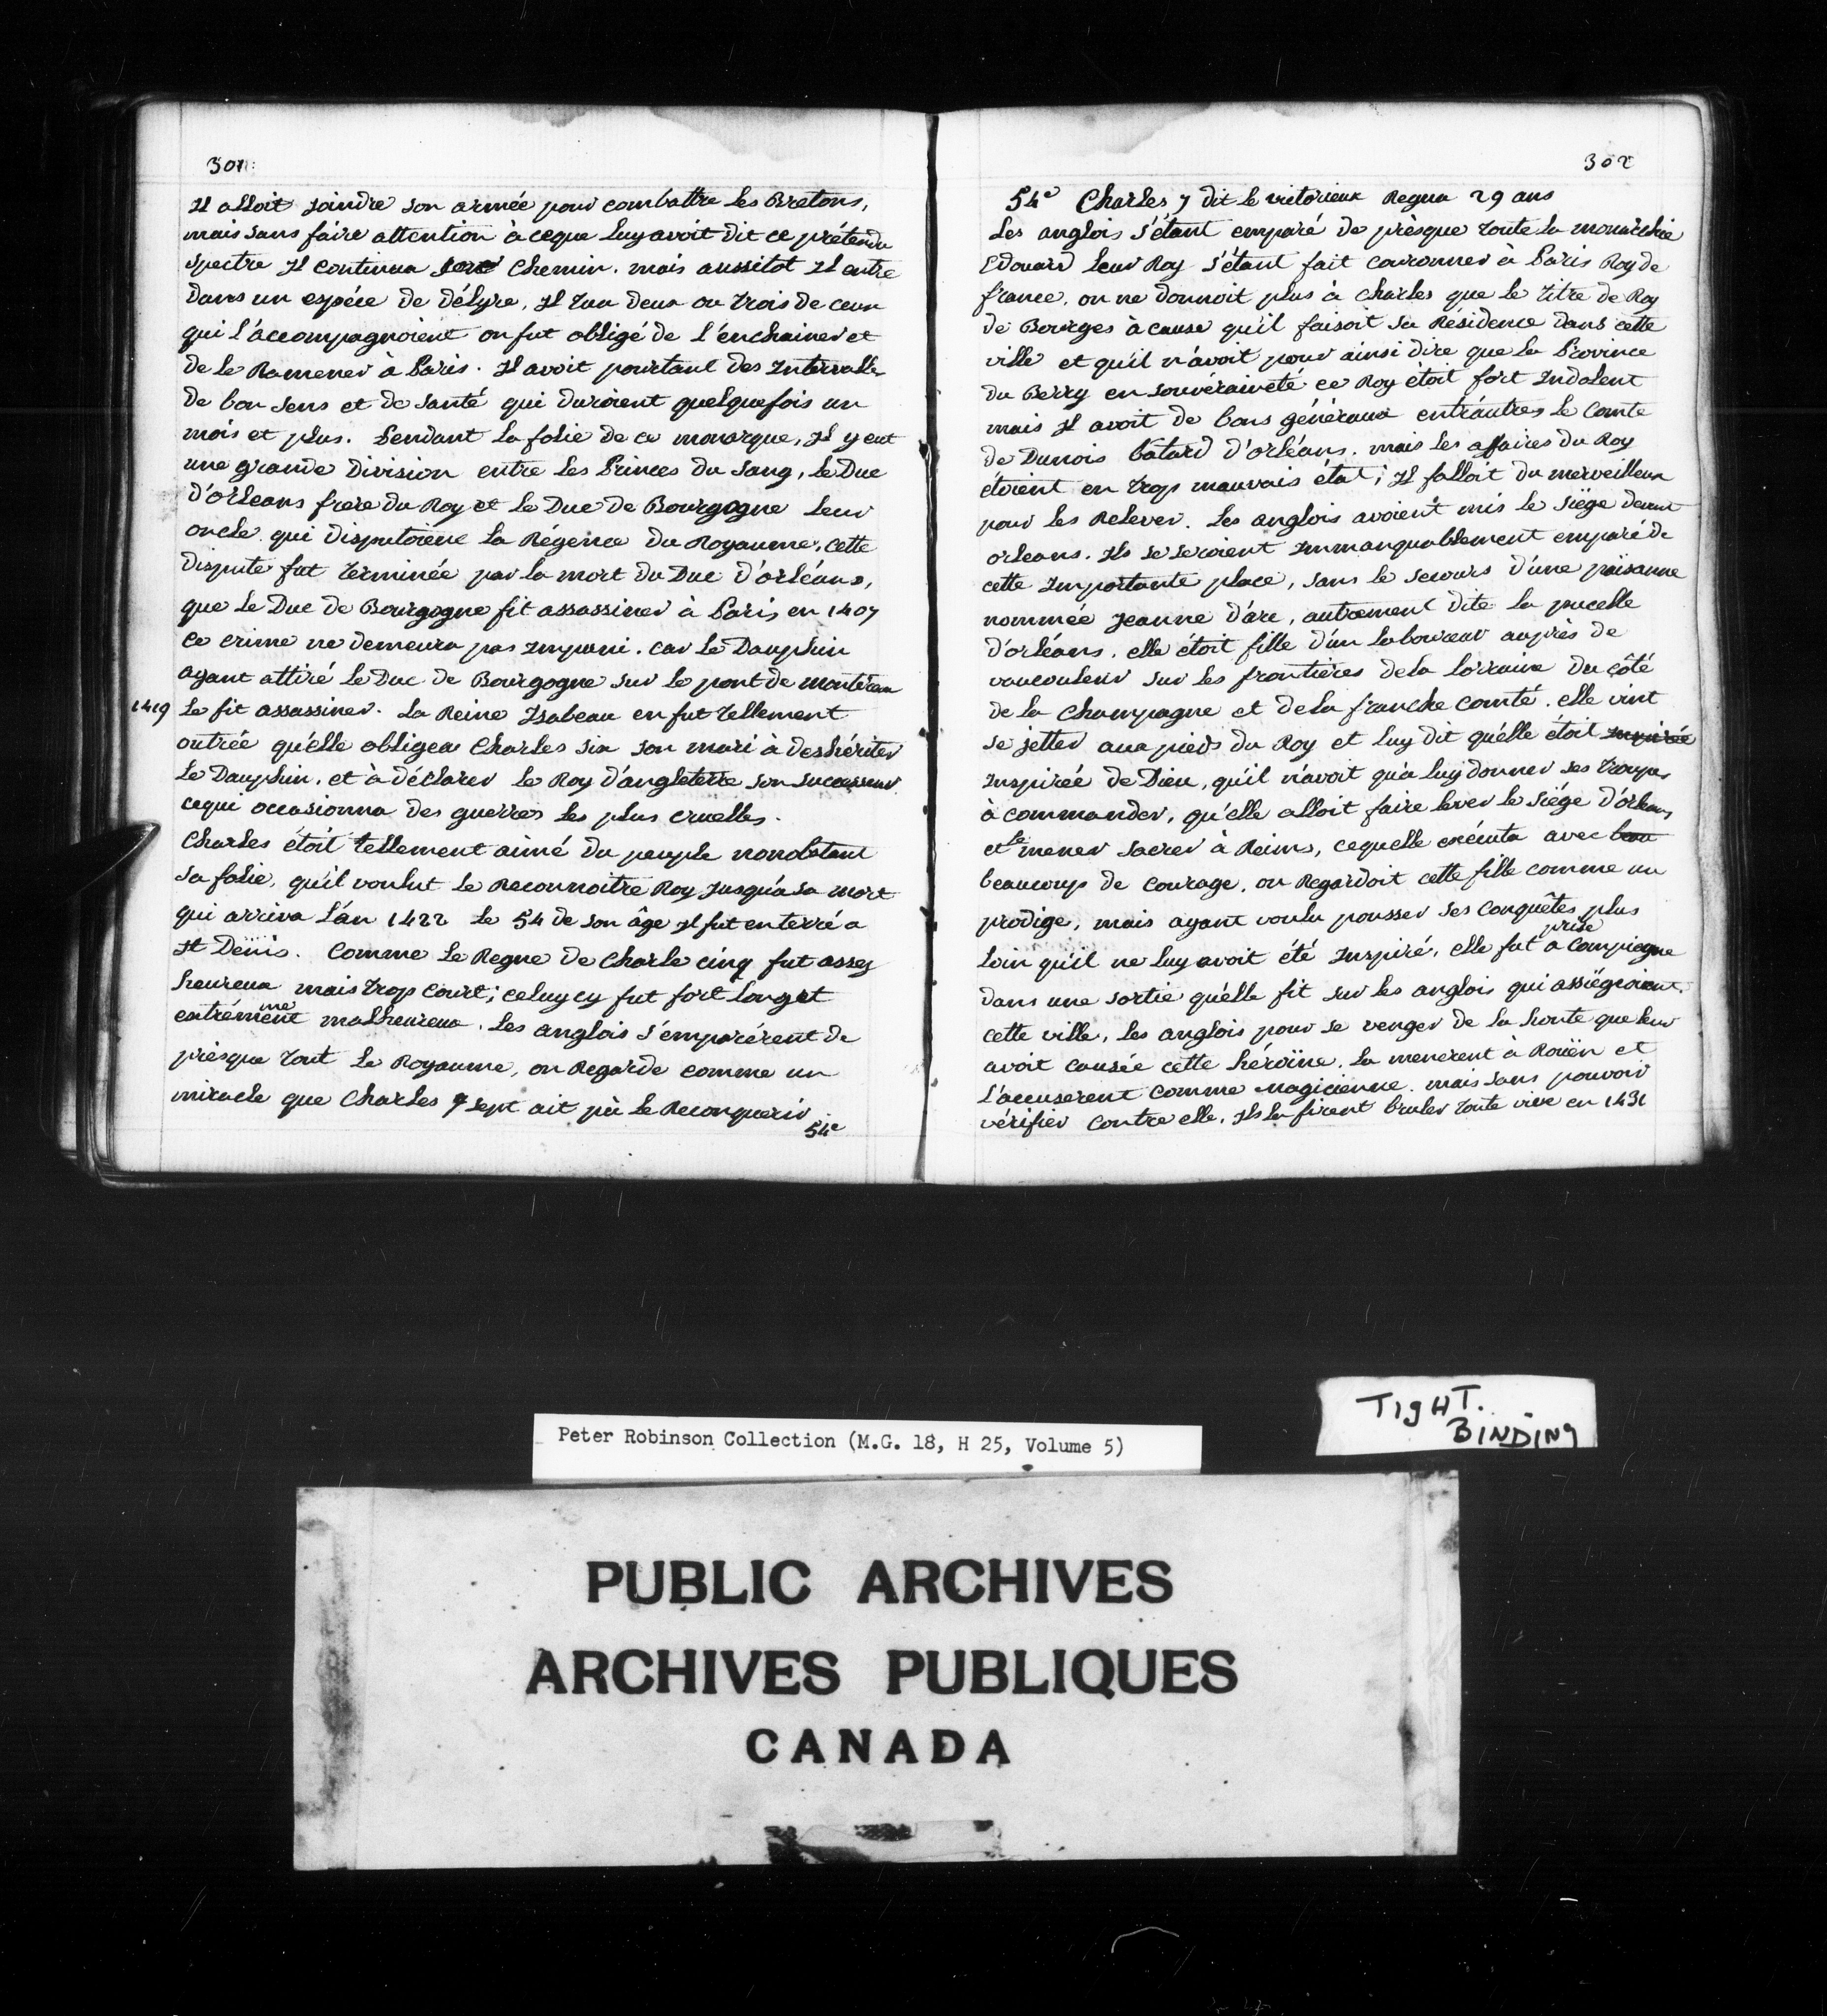 301
Il alloit joindre son armée pour combattre les Bretons,
mais sans faire attention à ceque luy avoit dit ce prétendu
spectre Il continua son chemin. mais aussitot Il entre
dans un espéce de délyre, Il tua deux ou trois de ceux
qui l'accompagnoient on fut obligé de l'enchainer et
de le Ramener à Paris. Il avoit pourtant des Intervalle
de bon sens et de santé qui duroient quelquefois un
mois et plus. Pendant la folie de ce monarque, Il y eut
une grande Division entre les Princes du sang, le Duc
d'orleans frere du Roy et le Duc de Bourgogne leur
oncle qui disputoient la Régence du Royaume, cette
dispute fut terminée par la mort du Duc d'orléans,
que le Duc de Bourgogne fit assassiner à Paris en 1407
ce crime ne demeura pas impuni. car le Dauphin
ayant attiré le Duc de Bourgogne sur le pont de montereau
1419 le fit assassiner. La Reine Isabeau en fut tellement
outrée qu'elle obligea Charles six son mari à deshériter
le Dauphin, et à déclarer le Roy d'angleterre son successeur
ceque occasionna des guerres les plus cruelles.
Charles étoit tellement aimé du peuple nonobstant
sa folie, qu'il voulut le Reconnoitre Roy jusqu'à sa mort
qui arriva l'án 1422 le 54 de son âge Il fut enterré a
St Denis. Comme le Regne de Charle cinq fut assez
heureux mais trop court; celuy cy fut fort long et
extrémement malheureux. Les anglois s'emparérent de
présque tout le Royaume, on Regarde comme un
miracle que Charles 7 sept ait pù le Reconquerir
54e
302
54e Charles 7 dit le victorieux Regna 29 ans
Les anglois s'étant emparé de présque toute la monarchie
Edouard leur Roy s'étant fait couronner à Paris Roy de
france, on ne donnoit plus à charles que le titre de Roy
de Bourges à cause qu'il faisoit sa Résidence dans cette
ville et qu'il n'avoit pour ainsi dire que la Province
du Berry en souvéraineté ce Roy étoit fort Indolent
mais Il avoit de bons généraux entr'autres le Comte
de Dunois bátard d'orléans. mais les affaires du Roy
étoient en trop mauvais état; Il falloit du merveilleux
pour les Relever. Les anglois avoient mis le siége devant
orleans. Ils se seroient Immanquablement emparé de
cette Importante place, sans le secours d'une païsanne
nommée jeanne d'arc, autrement dite la pucelle
d'orléans. elle étoit fille d'un laboureur auprès de
vaucouleur sur les frontières dela lorraine du côté
de la Champagne et dela franche comté. elle vint
se jetter aux pieds du Roy et luy dit qu'elle étoit Inspirée
Inspirée de Dieu, qu'il n'avoit qu'a luy donner ses troupes
à commander, qu'elle alloit faire lever le siége d'orleans
et le mener sacrer à Reims, cequelle exécuta avec beau
beaucoup de courage. on Regardoit cette fille comme un
prodige, mais ayant voulu pousser ses conquêtes plus
loin qu'il ne luy avoit été Inspiré, elle fut prise a Compiegne
dans une sortie qu'elle fit sur les anglois qui assiégeoient
cette ville. Les anglois pour se venger de la honte que leur
avoit causée cette héroïne. la menerent à Roüen et
l'accuserent comme magicienne. mais sans pouvoir
vérifier contre elle, Ils la firent bruler toute vive en 1431
TIGHT.
BINDING
Peter Robinson Collection (M.G. 18, H 25, Volume 5)
PUBLIC ARCHIVES
ARCHIVES PUBLIQUES
CANADA